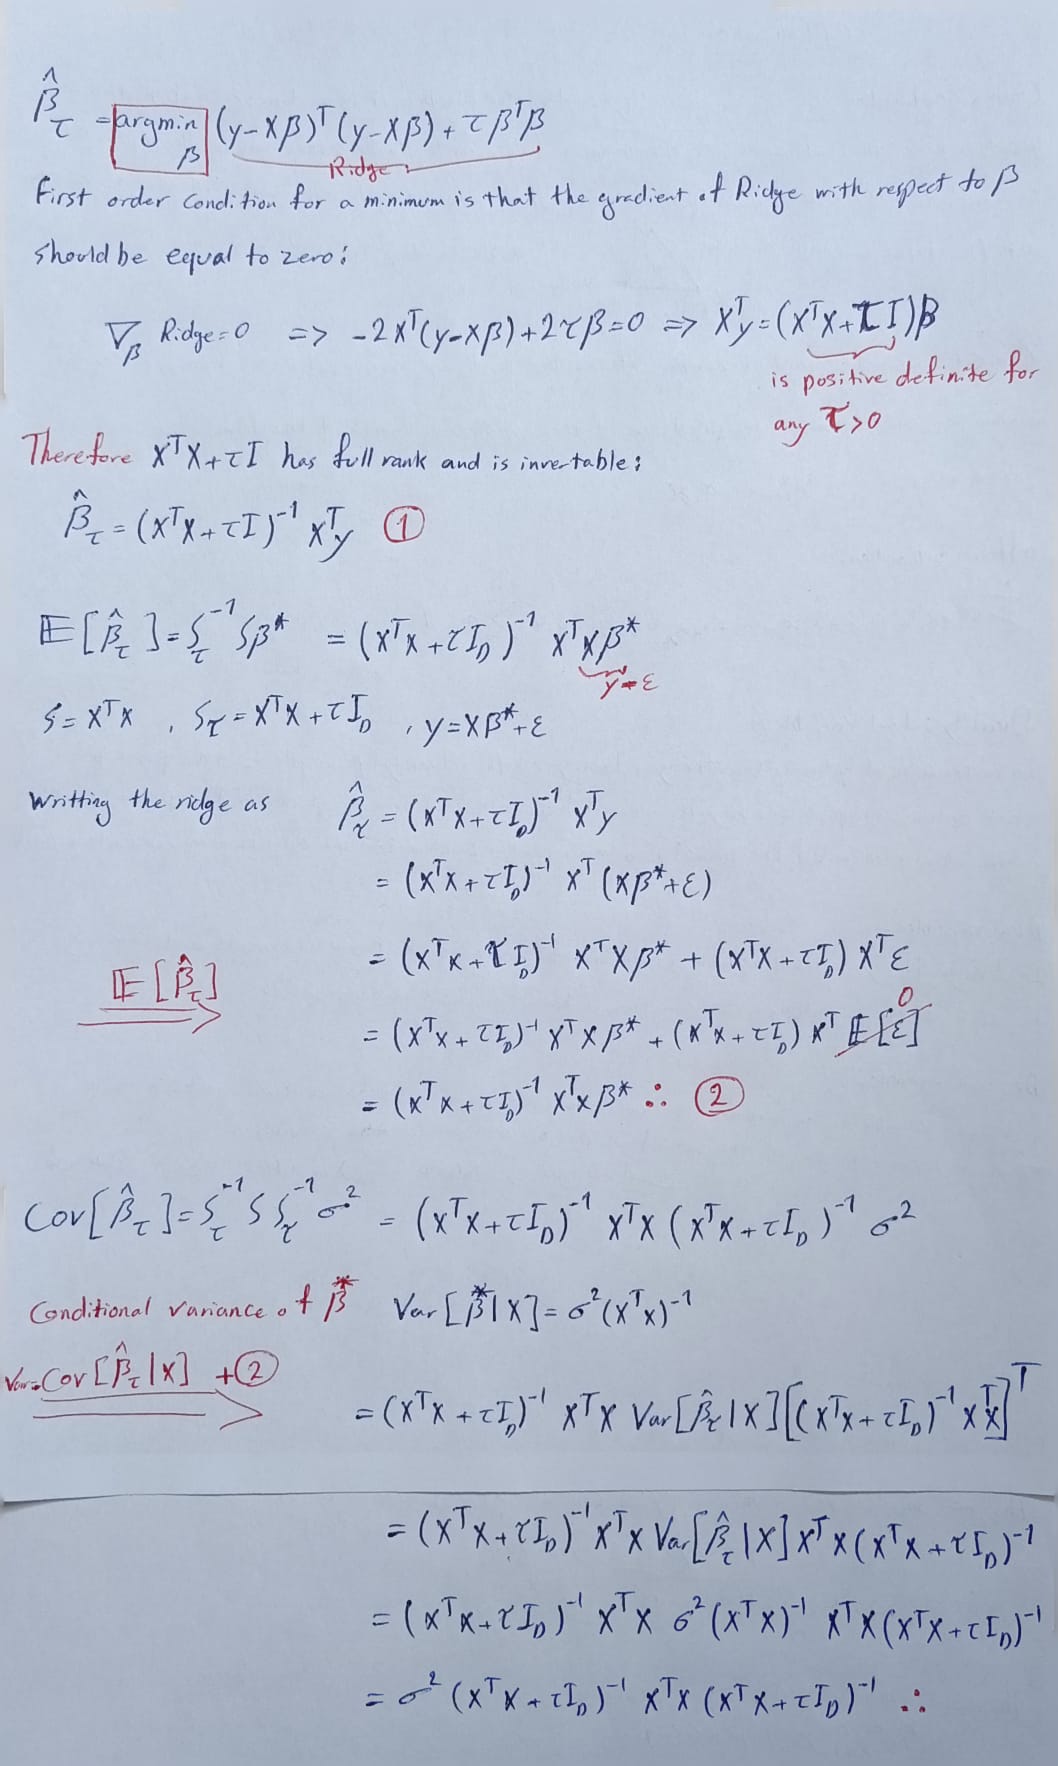 β̂_τ = argmin_β (y-Xβ)ᵀ(y-Xβ) + τβᵀβ
Ridge
First order condition for a minimum is that the gradient of Ridge with respect to β
should be equal to zero:
∇_β Ridge=0 => -2Xᵀ(y-Xβ)+2τβ=0 => Xᵀy=(XᵀX+τI)β
is positive definite for
any τ>0
Therefore XᵀX+τI has full rank and is invertable:
β̂_τ = (XᵀX+τI)⁻¹ Xᵀy ①
𝔼[β̂_τ] = S_τ⁻¹Sβ* = (XᵀX+τI_D)⁻¹ XᵀXβ*
y-ε
S=XᵀX , S_τ=XᵀX+τI_D , y=Xβ*+ε
Writting the ridge as β̂_τ = (XᵀX+τI_D)⁻¹ Xᵀy
= (XᵀX+τI_D)⁻¹ Xᵀ(Xβ*+ε)
= (XᵀX+τI_D)⁻¹ XᵀXβ* + (XᵀX+τI_D) Xᵀε
𝔼[β̂_τ]
= (XᵀX+τI_D)⁻¹ XᵀXβ* + (XᵀX+τI_D) Xᵀ 𝔼[ε] 0
= (XᵀX+τI_D)⁻¹ XᵀXβ* ∴ ②
Cov[β̂_τ] = S_τ⁻¹ S S_τ⁻¹ σ² = (XᵀX+τI_D)⁻¹ XᵀX (XᵀX+τI_D)⁻¹ σ²
Conditional variance of β* Var[β*|X] = σ²(XᵀX)⁻¹
Var=Cov[β̂_τ|X] +②
= (XᵀX+τI_D)⁻¹ XᵀX Var[β̂_τ|X][(XᵀX+τI_D)⁻¹ XᵀX]ᵀ
= (XᵀX+τI_D)⁻¹ XᵀX Var[β̂_τ|X] XᵀX(XᵀX+τI_D)⁻¹
= (XᵀX+τI_D)⁻¹ XᵀX σ²(XᵀX)⁻¹ XᵀX(XᵀX+τI_D)⁻¹
= σ²(XᵀX+τI_D)⁻¹ XᵀX (XᵀX+τI_D)⁻¹ ∴